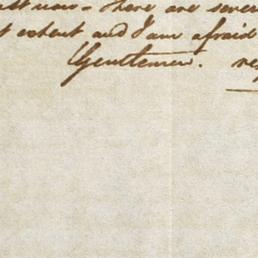 there are seve
t extent and I am afraid
Gentlemen. re